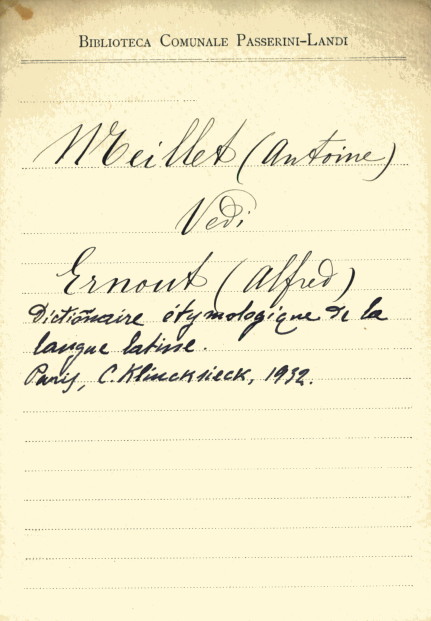 BIBLIOTECA COMUNALE PASSERINI-LANDI
Meillet (Antoine)
Vedi
Ernout (Alfred)
Dictionaire étymologique de la
langue latine.
Paris, C. Klincksieck, 1932.